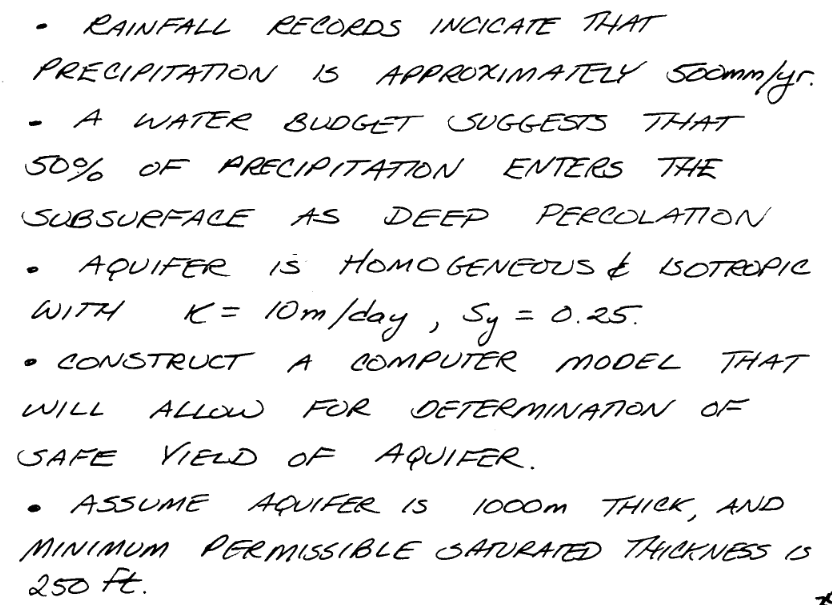 • RAINFALL RECORDS INCICATE THAT
PRECIPITATION IS APPROXIMATELY 500mm/yr.
- A WATER BUDGET SUGGESTS THAT
50% OF PRECIPITATION ENTERS THE
SUBSURFACE AS DEEP PERCOLATION
• AQUIFER IS HOMOGENEOUS & ISOTROPIC
WITH K = 10m/day, Sy = 0.25.
• CONSTRUCT A COMPUTER MODEL THAT
WILL ALLOW FOR DETERMINATION OF
SAFE YIELD OF AQUIFER.
• ASSUME AQUIFER IS 1000m THICK, AND
MINIMUM PERMISSIBLE SATURATED THICKNESS IS
250 ft.